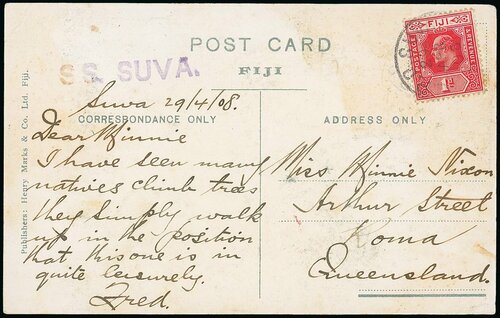 POST CARD
FIJI
SS. SUVA.
FIJI
POSTAGE
& REVENUE
1d
Publishers: Henry Marks & Co. Ltd. Fiji.
CORRESPONDENCE ONLY
Suva 29/4/08.
Dear Minnie
I have seen many
natives climb trees
they simply walk
up in the position
that this one is in
quite leisurely.
Fred.
ADDRESS ONLY
Miss Minnie Nixon
Arthur Street
Roma
Queensland.